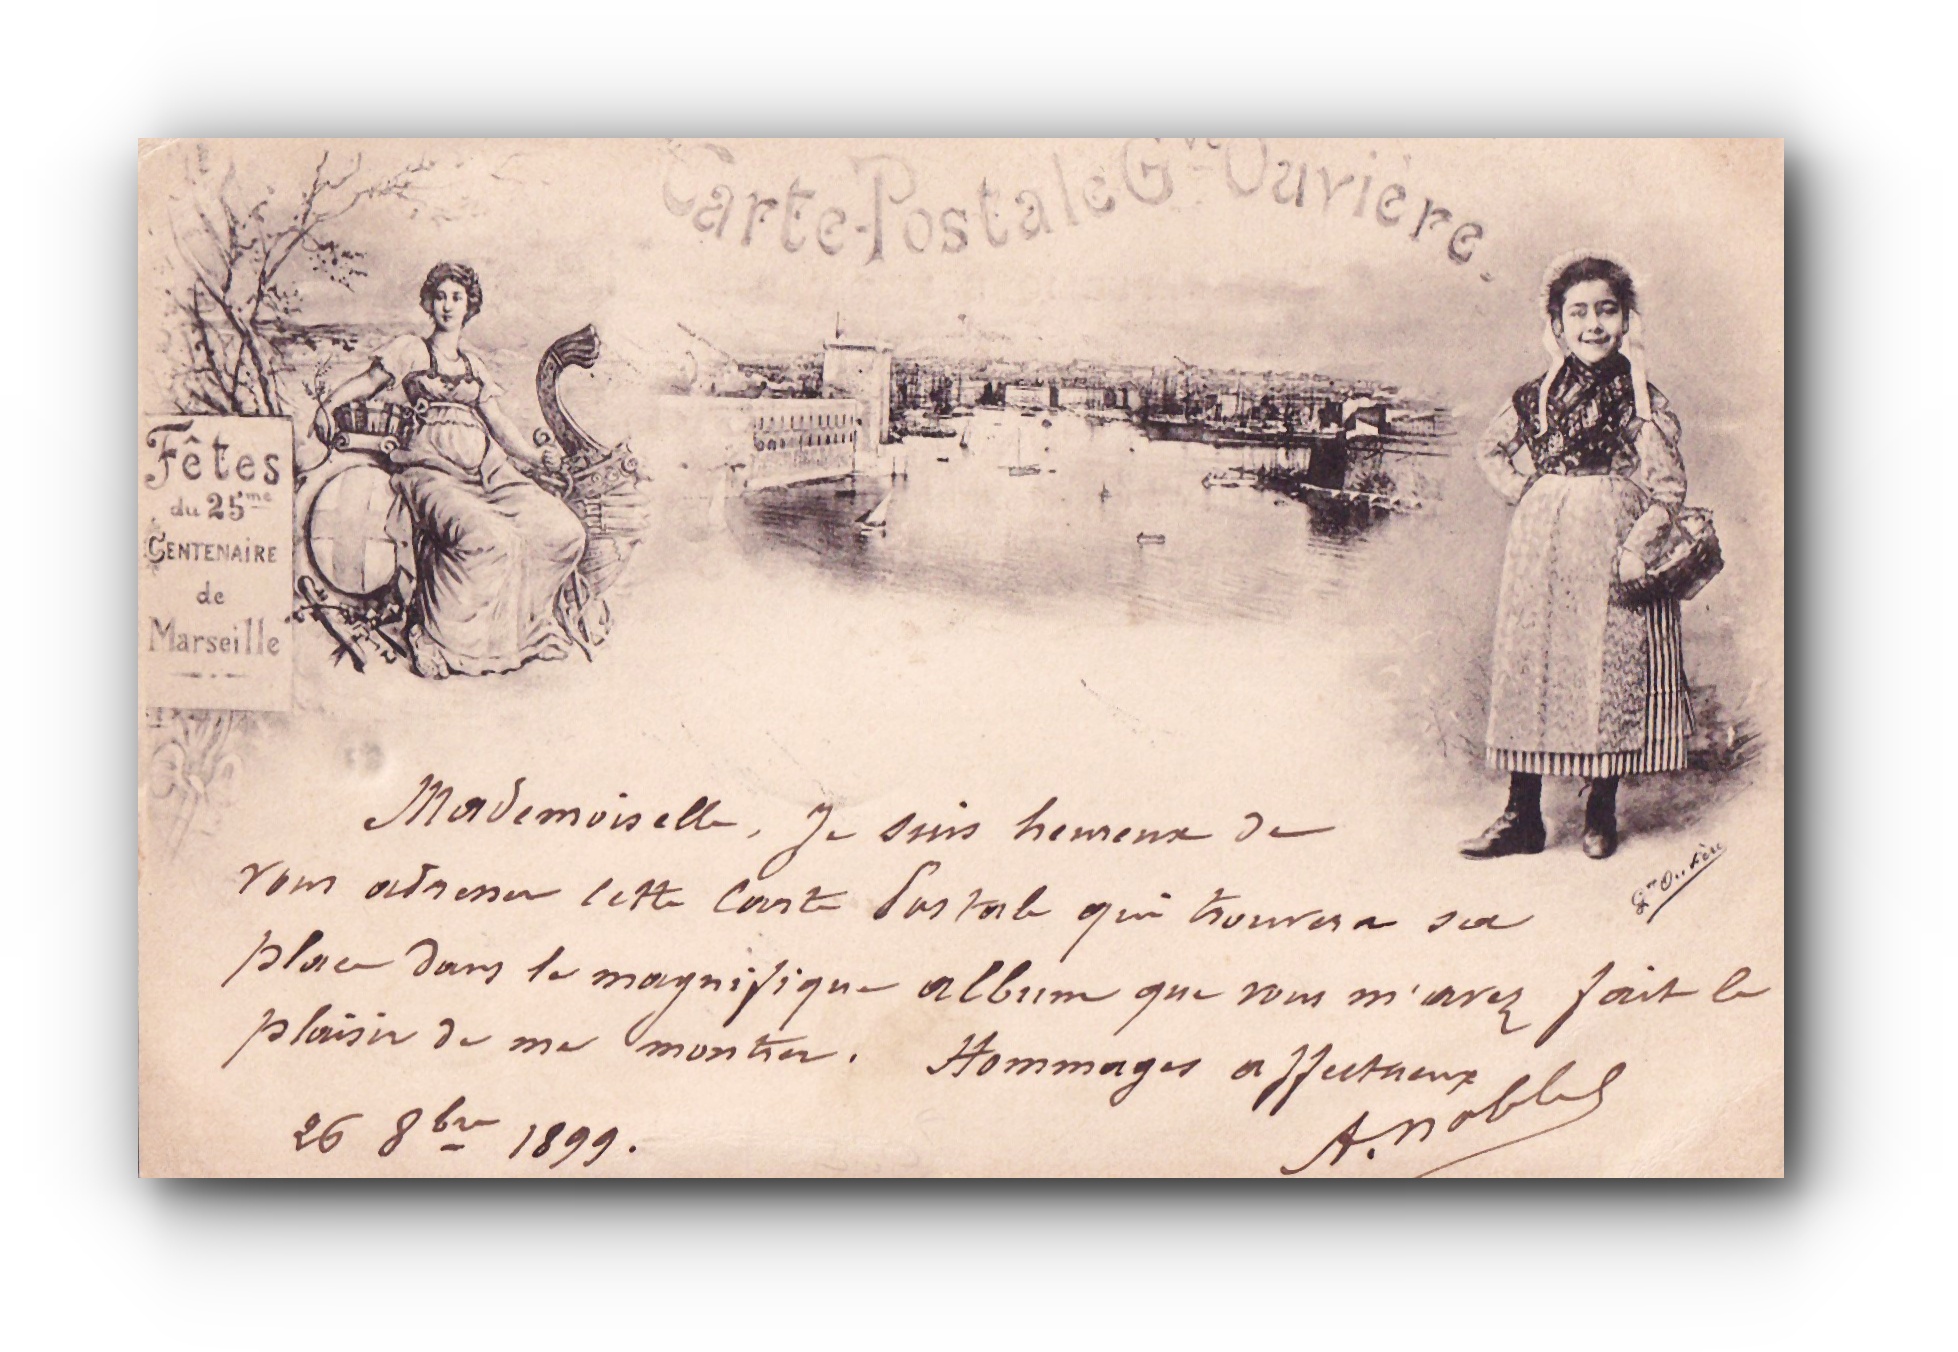 Carte-Postale Gve Ouvière.
Fêtes
du 25me
CENTENAIRE
de
Marseille
Gve Ouvière
Mademoiselle, Je suis heureux de
vous adresser cette Carte Postale qui trouvera sa
place dans le magnifique album que vous m'avez fait le
plaisir de me montrer. Hommages affectueux
26 8bre 1899.